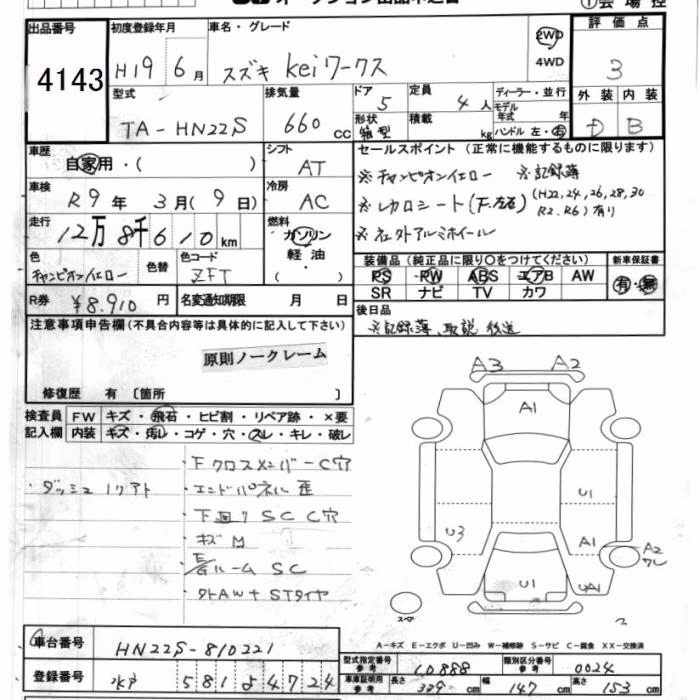 オークション出品申込書
①会場控
出品番号
4143
初度登録年月
H19年6月
車名・グレード
スズキ Keiワークス
2WD
4WD
評価点
3
型式
TA-HN22S
排気量
660 cc
ドア
5
形状
箱型
定員
4人
積載
kg
ディーラー・並行
モデル年式 年
ハンドル 左・右
外装
D
内装
B
車歴
自家用・( )
シフト
AT
セールスポイント (正常に機能するものに限ります)
※チャンピオンイエロー ※記録簿
(H22,24,26,28,30
※レカロシート(F左右) R2.R6)有り
※社外アルミホイール
車検
R9年3月(9日)
冷房
AC
走行
12万8千610km
燃料
ガソリン
軽油
( )
色
チャンピオンイエロー
色替
色コード
ZFT
装備品 (純正品に限り○をつけてください)
PS PW ABS エアB AW
SR ナビ TV カワ
新車保証書
有・無
R券
¥8,910円
名変通知期限 月 日
後日品
※記録簿、取説 後送
注意事項申告欄 (不具合内容等は具体的に記入して下さい)
原則ノークレーム
修復歴 有 〔箇所 〕
検査員記入欄
FW キズ・飛石・ヒビ割・リペア跡・×要
内装 キズ・汚レ・コゲ・穴・スレ・キレ・破レ
・FクロスメンバーC穴
・ダッシュ1リアト
・エンドパネル歪
・下回りSC C穴
・キズM
・E/Gルーム SC
・外AW+STタイヤ
A3 A2
A1
U1
U3
A1
A2
ワレ
U1
UA1
スペア
A-キズ E-エクボ U-凹み W-補修跡 S-サビ C-腐食 XX-交換済
車台番号
HN22S-810221
登録番号
581 4724
型式指定番号 参考
10888
類別区分番号 参考
0024
車庫証明用 参考
長さ 339cm
幅 147cm
高さ 153cm